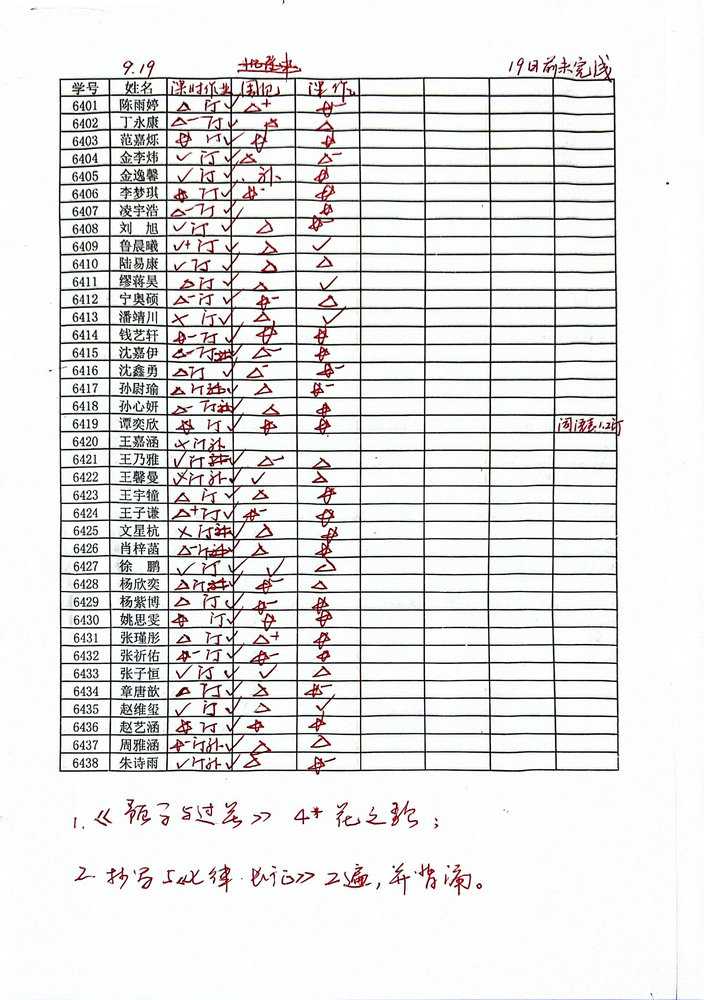 9.19 19日前未完成
学号 姓名 课时作业 周记 课作
6401 陈雨婷 △ 订 ✓ △+ ☆-
6402 丁永康 △- 订 ✓ △ △
6403 范嘉烁 ☆ 订 ✓ ☆ ☆
6404 金李炜 ✓ 订 ✓ △ △-
6405 金逸馨 ✓ 订 ✓ 补 ☆
6406 李梦琪 ☆ 订 ✓ ☆- ☆
6407 凌宇浩 △- 订 ✓ ☆
6408 刘旭 ✓ 订 ✓ △ ☆-
6409 鲁晨曦 ✓+ 订 ✓ △ ✓
6410 陆易康 ✓ 订 ✓ △ △
6411 缪蒋昊 △ 订 ✓ △ ✓
6412 宁奥硕 △- 订 ✓ ☆- △
6413 潘靖川 × 订 ✓ △ ✓
6414 钱艺轩 ☆- 订 ✓ ☆ ☆
6415 沈嘉伊 △- 订 ✓ △- ☆
6416 沈鑫勇 △ 订 ✓ △- ☆-
6417 孙尉瑜 △ 订 ✓ △ ☆-
6418 孙心妍 △- 订 ✓ △ ☆
6419 谭奕欣 ☆ 订 ✓ ☆ ☆
6420 王嘉涵 × 订补
6421 王乃雅 ✓ 订 ✓ △- △
6422 王馨曼 订补 ✓ ✓ △
6423 王宇犝 △ 订 ✓ △ ☆
6424 王子谦 △+ 订 ✓ ☆- ☆
6425 文星杭 × 订 ✓ △ ☆
6426 肖梓菡 △- 订 ✓ △ ☆
6427 徐鹏 ✓ 订 ✓ ✓ △
6428 杨欣奕 △ 订 ✓ ☆- △
6429 杨紫博 △ 订 ✓ ☆- ☆
6430 姚思雯 ☆ 订 ✓ ☆ ☆
6431 张瑾彤 △ 订 ✓ △+ ☆
6432 张祈佑 ☆- 订 ✓ ☆- ☆
6433 张子恒 ✓ 订 ✓ ✓ △
6434 章唐歆 △ 订 ✓ △ ☆-
6435 赵维玺 ✓ 订 ✓ △ ✓
6436 赵艺涵 ☆ 订 ✓ ☆ ☆
6437 周雅涵 ☆- 订补 ✓ △ △
6438 朱诗雨 ✓ 订补 ✓ △ ☆-
1.《 与过 》 4* 花之歌;
2. 抄写 《七律·长征》2遍,并背诵。